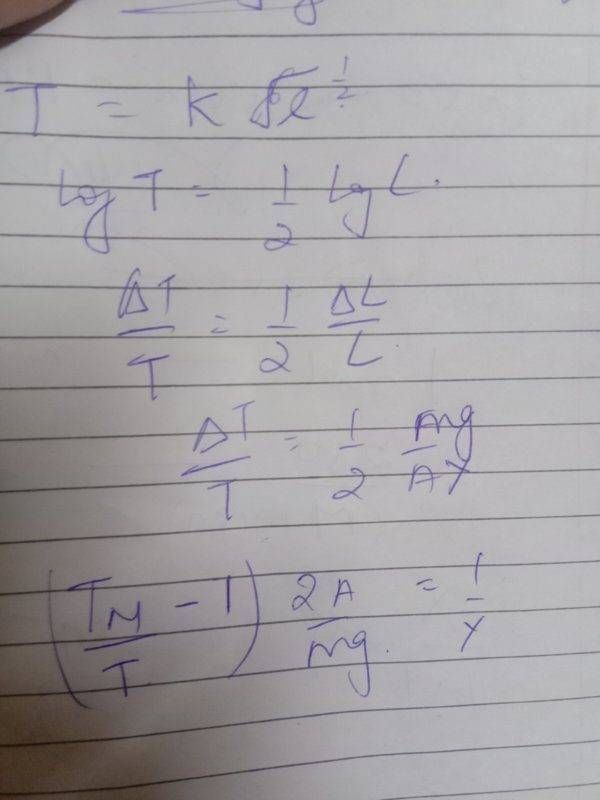 T = k √l^{1/2}
log T = 1/2 log L.
ΔT/T = 1/2 ΔL/L.
ΔT/T = 1/2 mg/AY
(T_M/T - 1) 2A/mg. = 1/Y